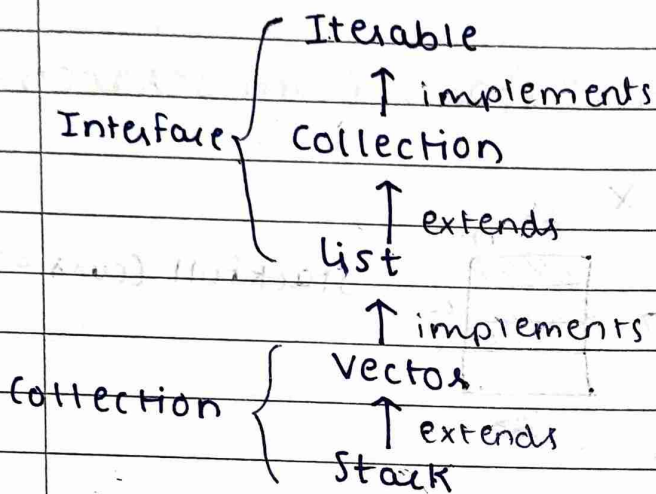 Iterable
↑ implements
Interface { Collection
↑ extends
List
↑ implements
Vector
Collection {
↑ extends
Stack